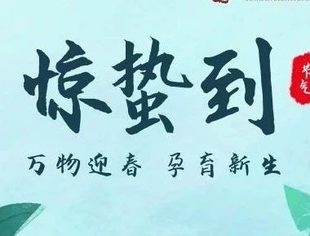 惊蛰到
节气
万物迎春 孕育新生